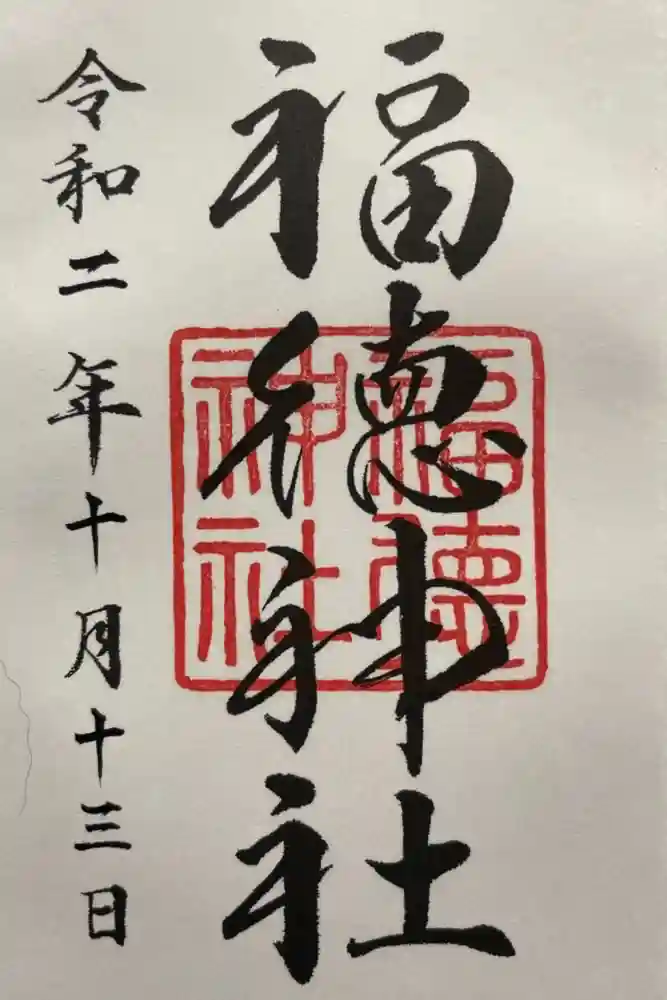 福德神社
令和二年十月十三日
福德神社